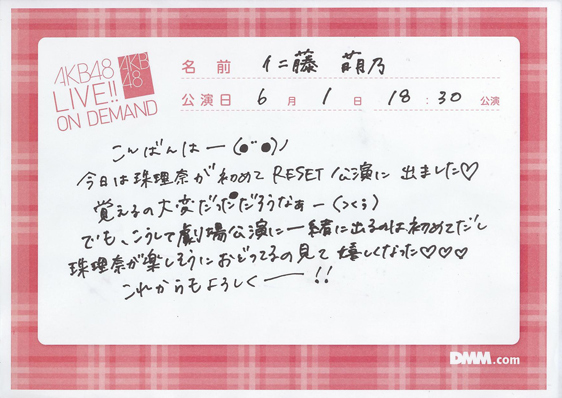 AKB48
LIVE!!
ON DEMAND
AKB
48
名前 仁藤 萌乃
公演日 6月1日 18:30公演
こんばんはー(●˘●)ノ
今日は珠理奈が初めてRESET公演に出ました♡
覚えるの大変だっただろうなぁー(つくぅ)
でも、こうして劇場公演に一緒に出るのは初めてだし
珠理奈が楽しそうにおどってるの見て嬉しくなった♡♡♡
これからもよろしくー!!
DMM.com